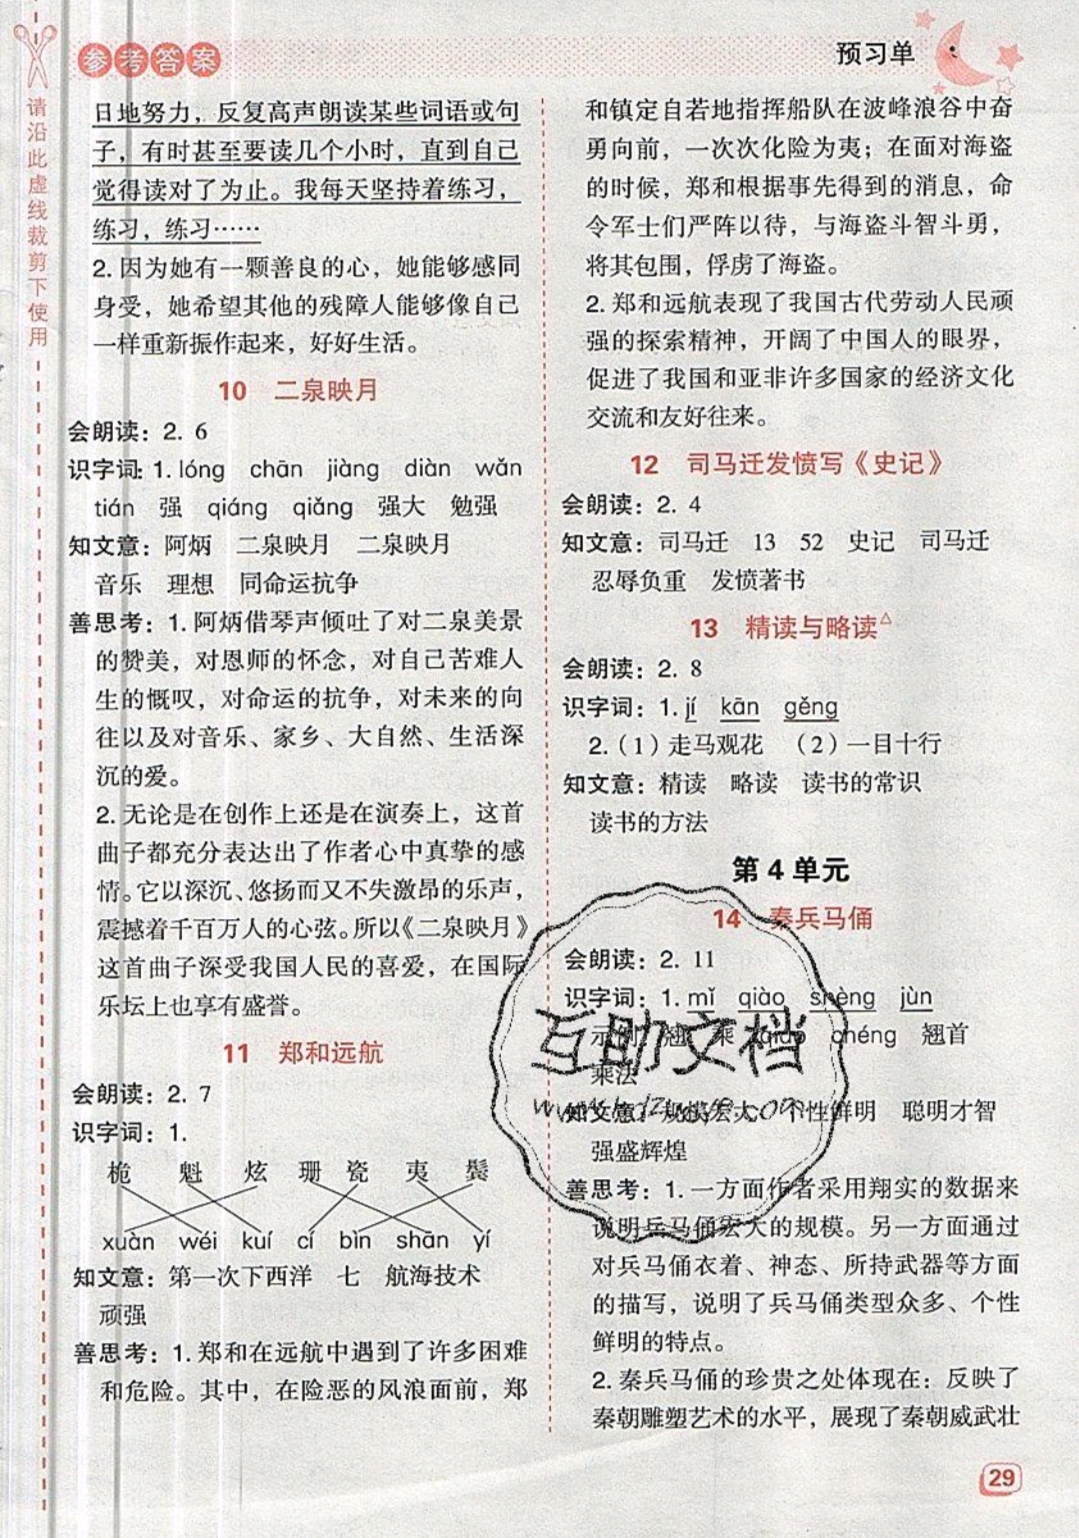 参考答案
预习单
请沿此虚线裁剪下使用
日地努力，反复高声朗读某些词语或句
子，有时甚至要读几个小时，直到自己
觉得读对了为止。我每天坚持着练习，
练习，练习……
2. 因为她有一颗善良的心，她能够感同
身受，她希望其他的残障人能够像自己
一样重新振作起来，好好生活。
10 二泉映月
会朗读：2. 6
识字词：1. lóng chān jiàng diàn wǎn
tián 强 qiáng qiǎng 强大 勉强
知文意：阿炳 二泉映月 二泉映月
音乐 理想 同命运抗争
善思考：1. 阿炳借琴声倾吐了对二泉美景
的赞美，对恩师的怀念，对自己苦难人
生的慨叹，对命运的抗争，对未来的向
往以及对音乐、家乡、大自然、生活深
沉的爱。
2. 无论是在创作上还是在演奏上，这首
曲子都充分表达出了作者心中真挚的感
情。它以深沉、悠扬而又不失激昂的乐声，
震撼着千百万人的心弦。所以《二泉映月》
这首曲子深受我国人民的喜爱，在国际
乐坛上也享有盛誉。
11 郑和远航
会朗读：2. 7
识字词：1.
桅 魁 炫 珊 瓷 夷 鬓
xuàn wéi kuí cí bìn shān yí
知文意：第一次下西洋 七 航海技术
顽强
善思考：1. 郑和在远航中遇到了许多困难
和危险。其中，在险恶的风浪面前，郑
和镇定自若地指挥船队在波峰浪谷中奋
勇向前，一次次化险为夷；在面对海盗
的时候，郑和根据事先得到的消息，命
令军士们严阵以待，与海盗斗智斗勇，
将其包围，俘虏了海盗。
2. 郑和远航表现了我国古代劳动人民顽
强的探索精神，开阔了中国人的眼界，
促进了我国和亚非许多国家的经济文化
交流和友好往来。
12 司马迁发愤写《史记》
会朗读：2. 4
知文意：司马迁 13 52 史记 司马迁
忍辱负重 发愤著书
13 精读与略读△
会朗读：2. 8
识字词：1. jí kān gěng
2.（1）走马观花 （2）一目十行
知文意：精读 略读 读书的常识
读书的方法
第4单元
14 秦兵马俑
会朗读：2. 11
识字词：1. mǐ qiào shèng jùn
示例：翘 乘 qiáo chéng 翘首
乘法
互助文档
知文意：规模宏大 个性鲜明 聪明才智
强盛辉煌
善思考：1. 一方面作者采用翔实的数据来
说明兵马俑宏大的规模。另一方面通过
对兵马俑衣着、神态、所持武器等方面
的描写，说明了兵马俑类型众多、个性
鲜明的特点。
2. 秦兵马俑的珍贵之处体现在：反映了
秦朝雕塑艺术的水平，展现了秦朝威武壮
29